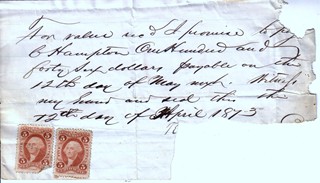 For value rec'd I promise to pay
C Hampton One Hundred and
forty six dollars payable on the
12th day of May next. Witness
my hand and seal this the
12th day of April 1873
5
5